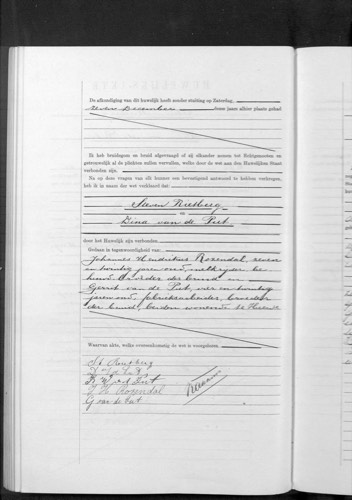 De afkondiging van dit huwelijk heeft zonder stuiting op Zaterdag,
zeven December dezes jaars alhier plaats gehad
Ik heb bruidegom en bruid afgevraagd of zij elkander nemen tot Echtgenooten en
getrouwelijk al de plichten zullen vervullen, welke door de wet aan den Huwelijken Staat
verbonden zijn.
Na op deze vragen van elk hunner een bevestigend antwoord te hebben verkregen,
heb ik in naam der wet verklaard dat
en
Dina van de Put
door het Huwelijk zijn verbonden.
Gedaan in tegenwoordigheid van:
Johannes Hendrikus Rozendal, zeven
en twintig jaren oud,
der bruid en
Gerrit van de Put, vier en twintig
jaren oud, fabrieksarbeider, broeder
der bruid, beiden wonende te
Waarvan akte, welke overeenkomstig de wet is voorgelezen.
D v d Put
B W v d Put
J H Rozendal
G van de Put